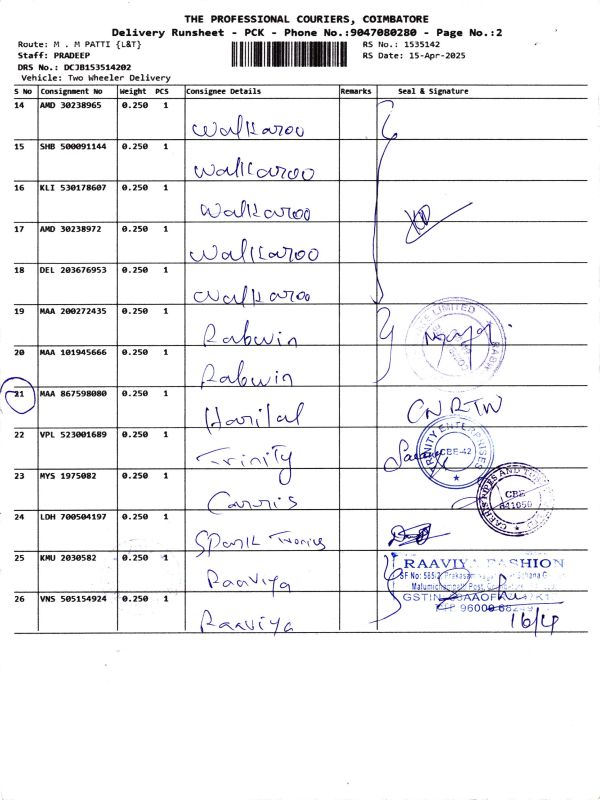 THE PROFESSIONAL COURIERS, COIMBATORE
Delivery Runsheet - PCK - Phone No.:9047080280 - Page No.:2
Route: M . M PATTI {L&T}
RS No.: 1535142
Staff: PRADEEP
RS Date: 15-Apr-2025
DRS No.: DCJB153514202
Vehicle: Two Wheeler Delivery
S No Consignment No Weight PCS Consignee Details Remarks Seal & Signature
14 AMD 30238965 0.250 1
Walkaroo
15 SHB 500091144 0.250 1
Walkaroo
16 KLI 530178607 0.250 1
Walkaroo
17 AMD 30238972 0.250 1
Walkaroo
18 DEL 203676953 0.250 1
Walkaroo
19 MAA 200272435 0.250 1
Rabwin
LIMITED
20 MAA 101945666 0.250 1
Rabwin
21 MAA 867598080 0.250 1
Harilal
CNRTW
22 VPL 523001689 0.250 1
Trinity
TRINITY ENTERPRISES
CBE-42
23 MYS 1975082 0.250 1
Carris
PIPES AND
CBE
641050
24 LDH 700504197 0.250 1
Spark
25 KMU 2030582 0.250 1
Raaviya
RAAVIYA FASHION
SF No: 585/2
GSTIN
26 VNS 505154924 0.250 1
Raaviya
16/4